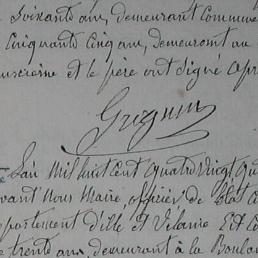 soixante ans, demeurant commune
cinquante cinq ans, demeurant au
et le père ont signé après
L'an Mil huit cent quatre vingt
vant Nous Maire, officier de l'Etat Ci
partement d'Ille et Vilaine Est co
e trente ans, demeurant à la Boula